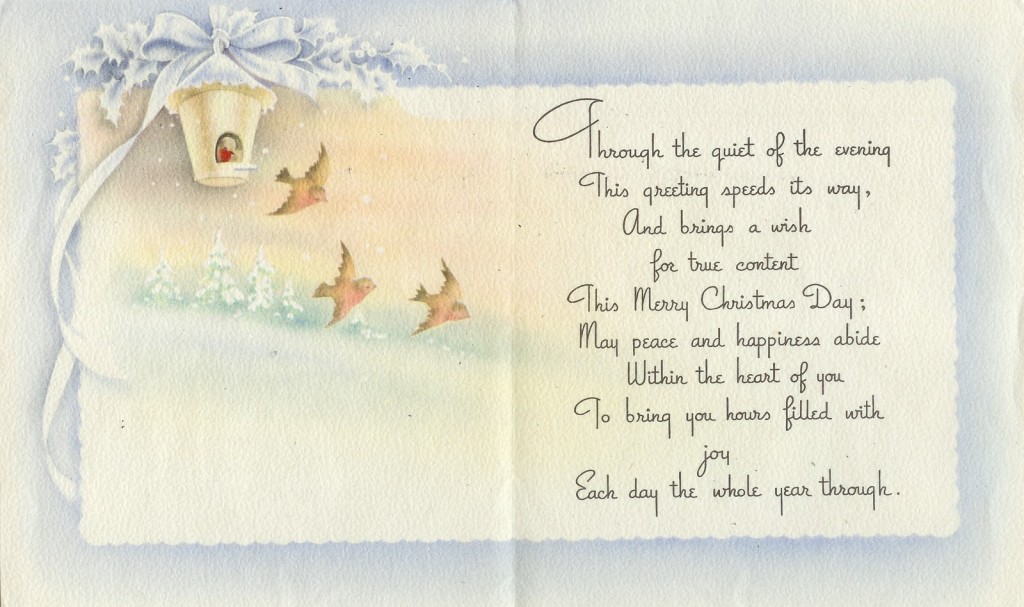 Through the quiet of the evening
This greeting speeds its way,
And brings a wish
for true content
This Merry Christmas Day;
May peace and happiness abide
Within the heart of you
To bring you hours filled with
joy
Each day the whole year through.